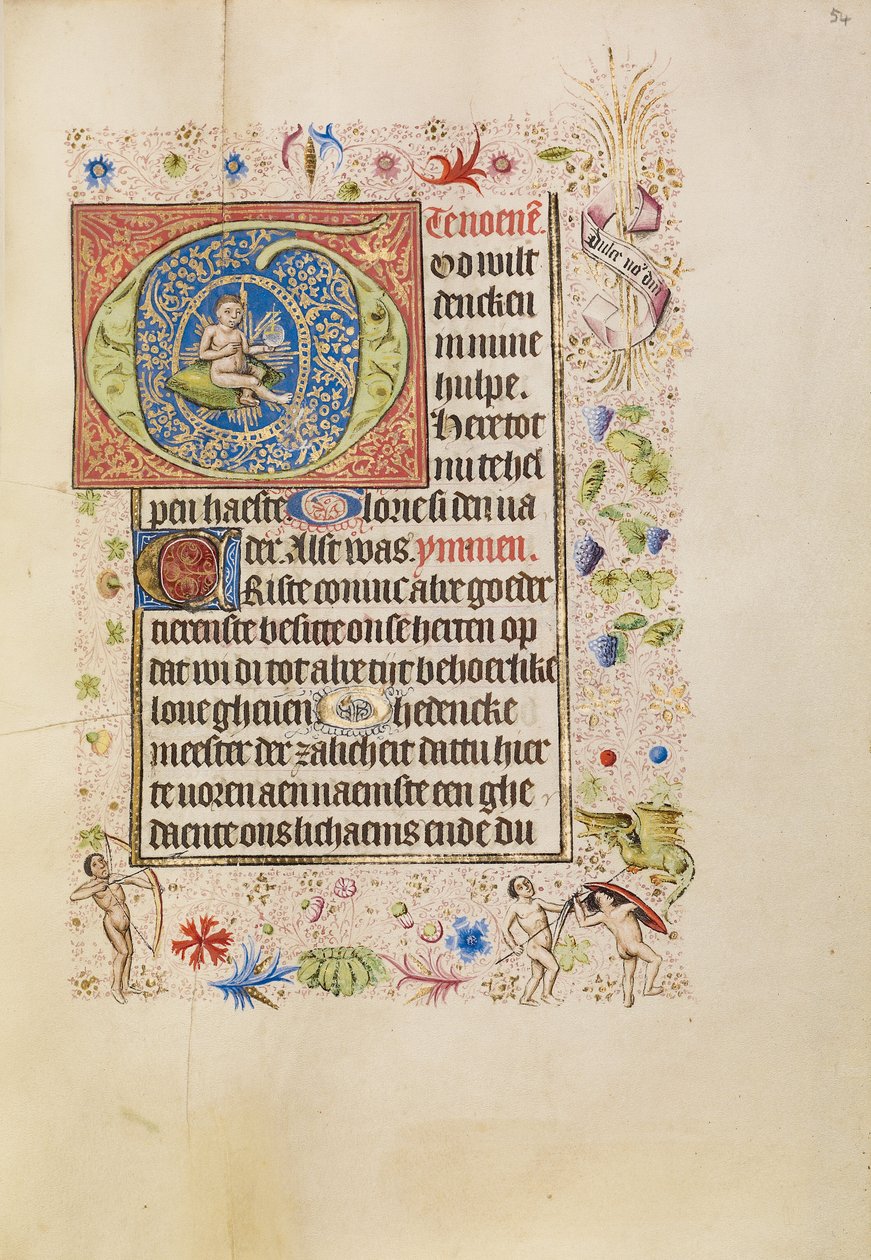 54
Te noenē.
God wilt
dencken
in mine
hulpe.
Here tot
mi te hel
pen haeste Glorie si den va
der. Alst was. ymmen.
CRiste coninc alre goeder
tierenste besitte onse herten op
dat wi di tot alre tijt behoerlike
loue gheuen Ghedencke
meester der zalicheit dattu hier
te uoren aennaemste een ghe
daente ons lichaems ende du
Dulce no' dni